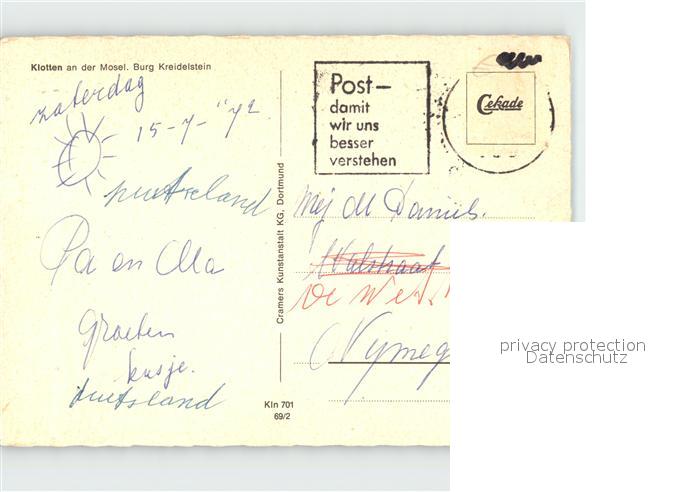 Klotten an der Mosel. Burg Kreidelstein
zaterdag
15-7-"72
Duitsland
Pa en Ma
Groeten
kusje.
Duitsland
Cramers Kunstanstalt KG, Dortmund
Kln 701
69/2
Post–
damit
wir uns
besser
verstehen
Cekade
Mej M Daniels.
De
Nymeg
privacy protection
Datenschutz